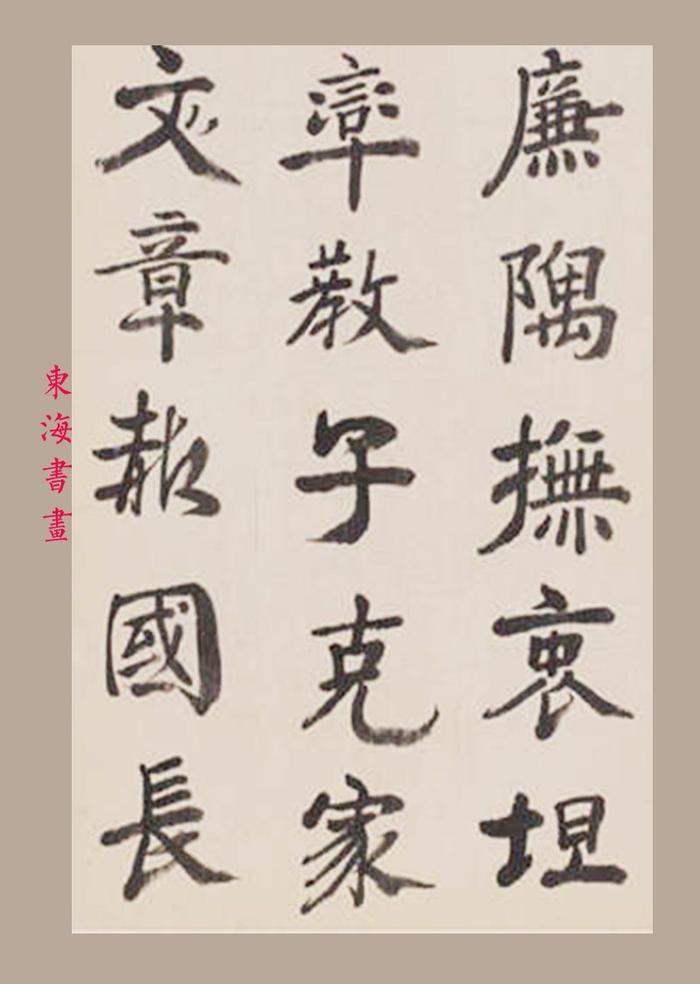 廉隅撫衷坦
率教子克家
文章報國長
東海書畫